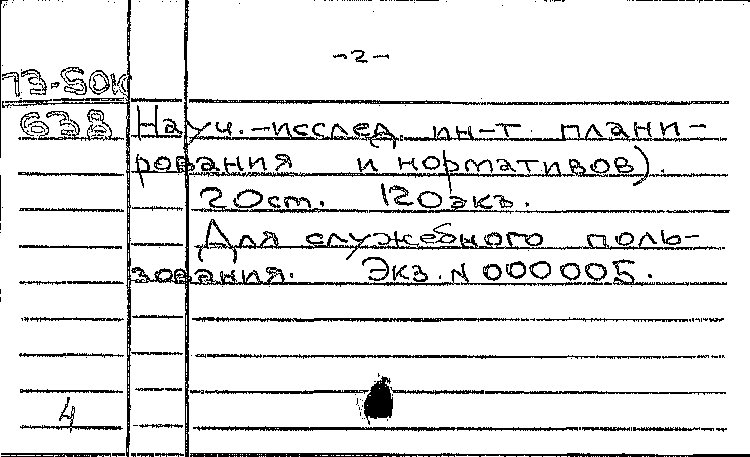 -2-
73-50к
638 Науч.-исслед. ин-т плани-
рования и нормативов).
20 ст. 120 экз.
Для служебного поль-
зования. Экз. N 000005.
4